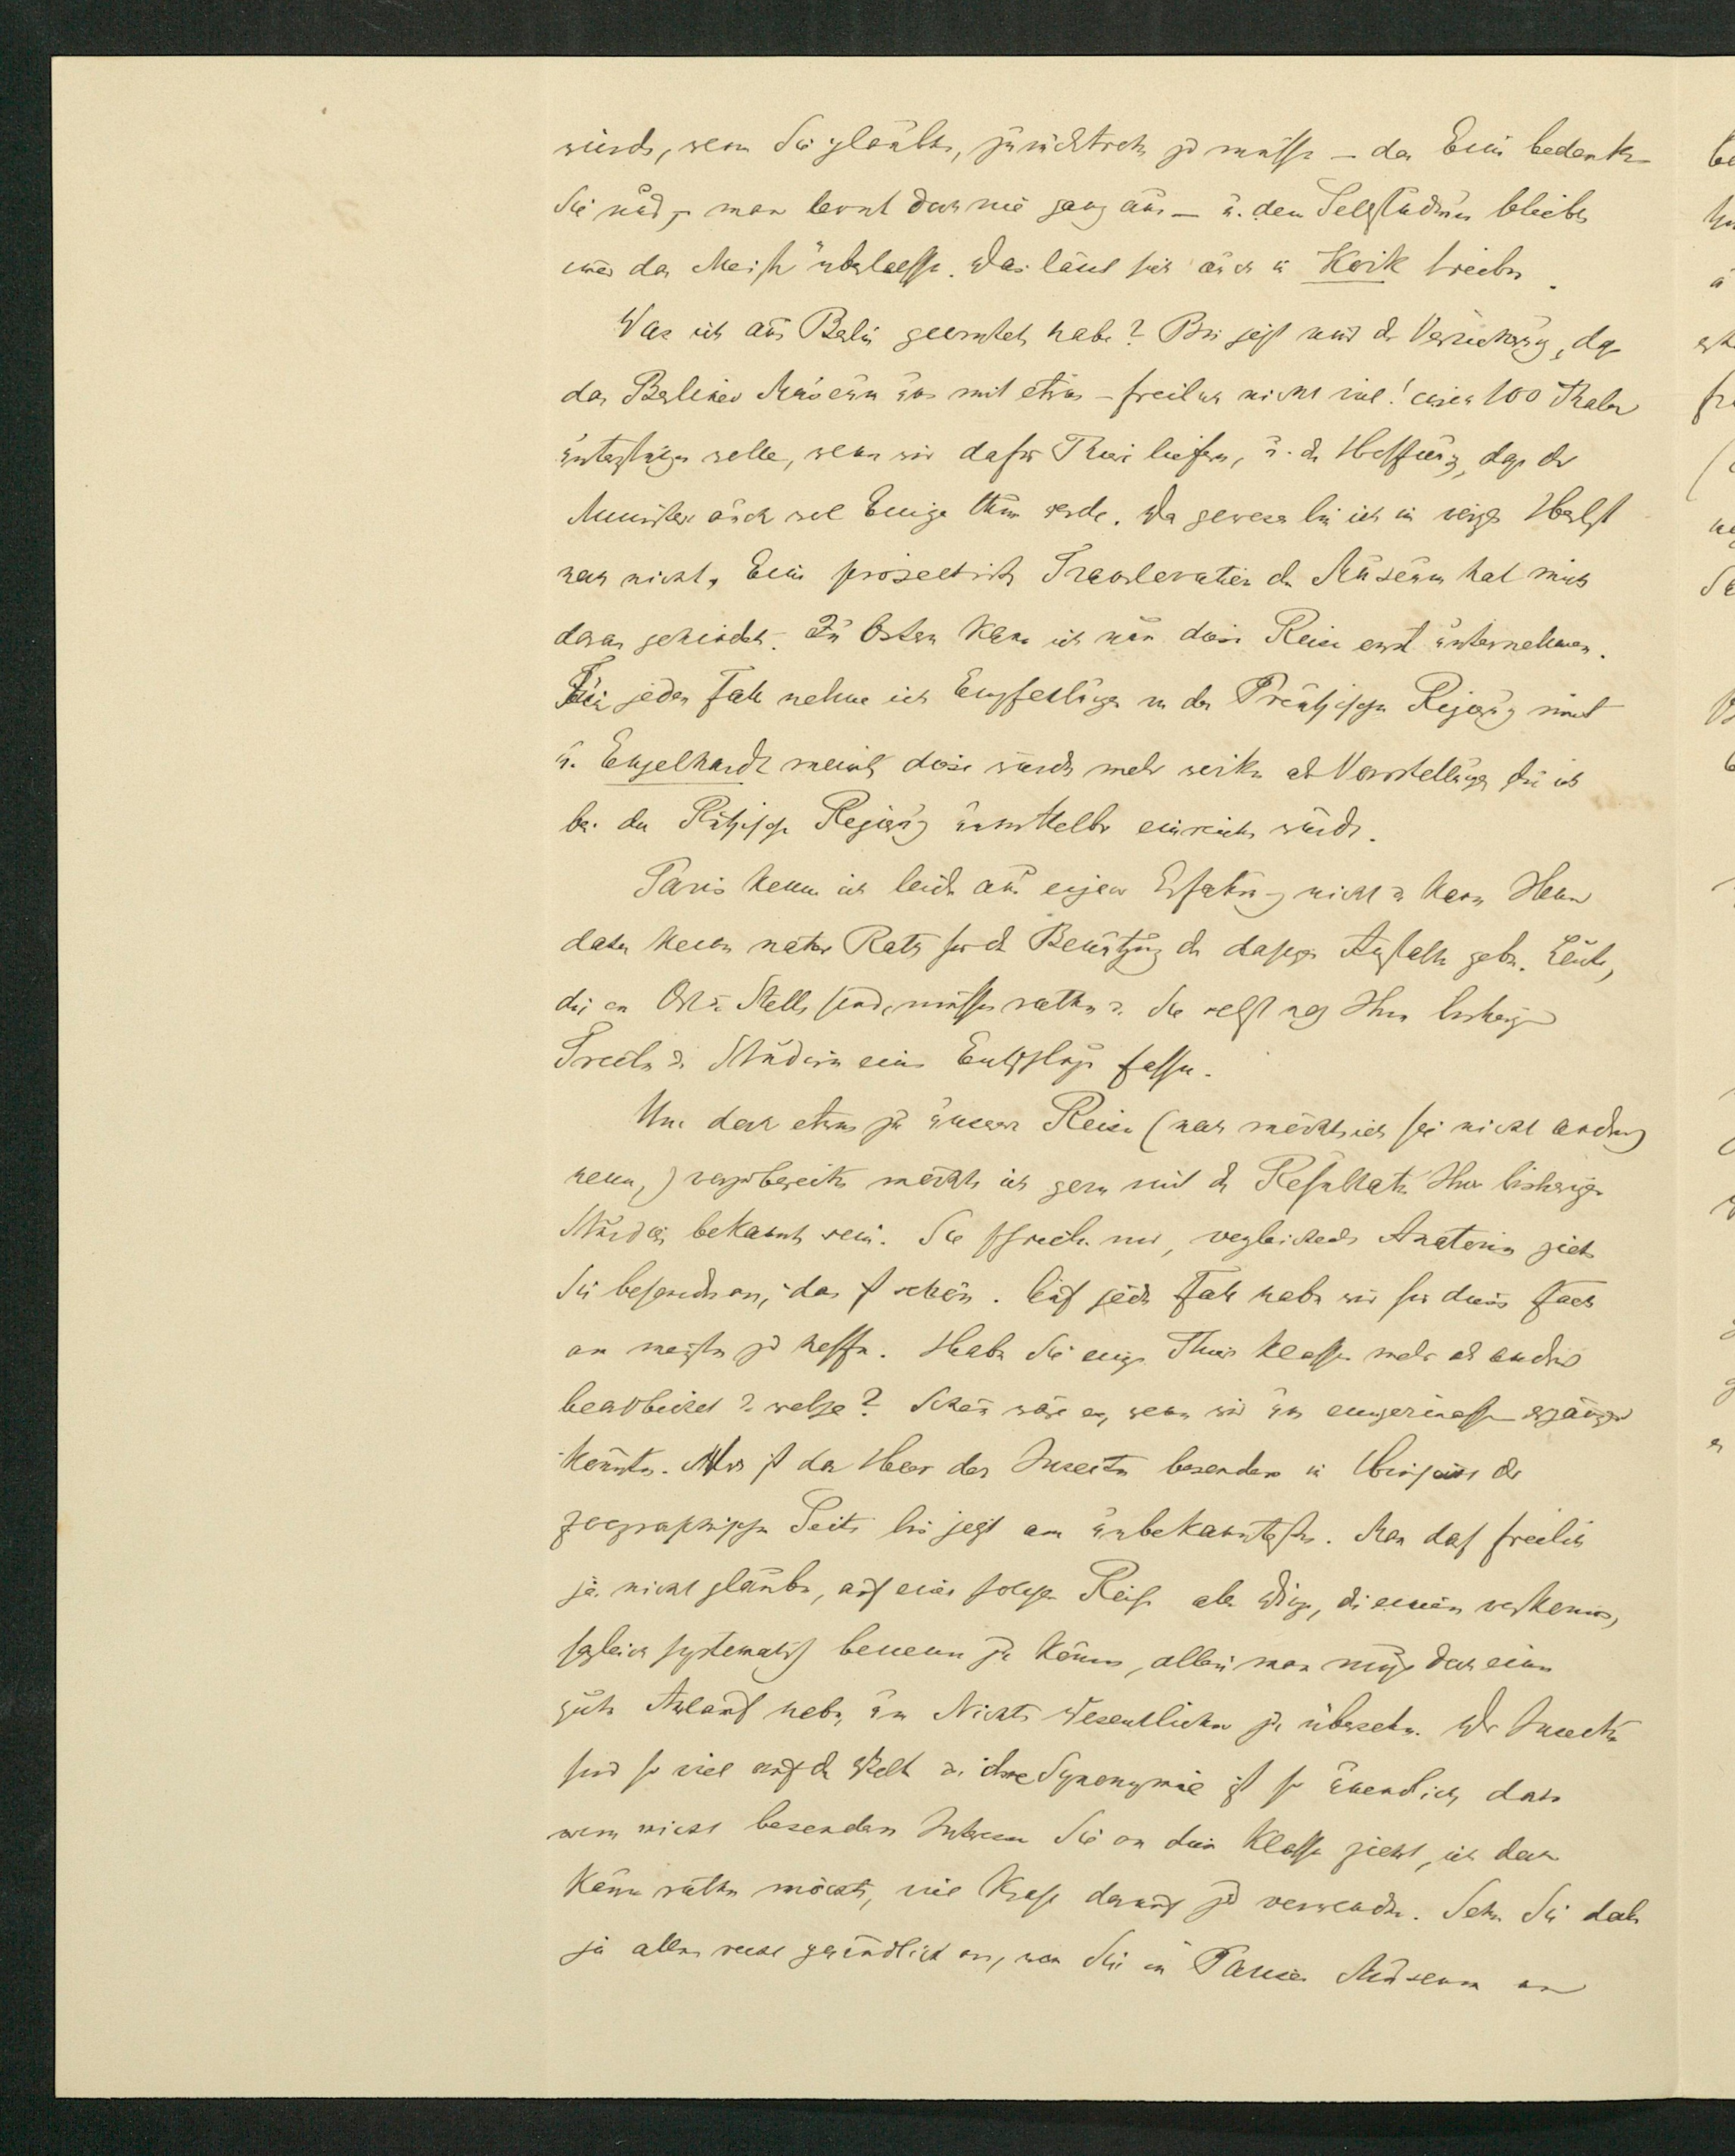 würde, wenn Sie glaubten, zurücktreten zu müssen – das Eine bedenken
Sie nur, man lernt doch nie ganz aus – u. dem Selbststudium bleibt
immer das Meiste überlassen. Das lässt sich auch in Koik treiben.
Was ich aus Berlin geerntet habe? Bis jetzt nur die Versicherung, daß
das Berliner Museum uns mit etwas – freilich nicht viel! circa 100 Thaler
unterstützen wolle, wenn wir dafür Thiere liefern, u. die Hoffnung, daß der
Minister auch wol Einiges thun werde. Da gewesen bin ich im vorigen Herbst
noch nicht, Eine projectirte Translocation des Museum hat mich
daran gehindert. Zu Ostern kann ich nun diese Reise erst unternehmen.
Für jeden Fall nehme ich Empfehlungen von der Preußischen Regierung mit
u. Engelhardt meint, diese würden mehr wirken als Vorstellungen die ich
bei der Russischen Regierung unmittelbar einreichen würde.
Paris kenne ich leider aus eigener Erfahrung nicht u. kann Ihnen
daher keinen nähern Rath für die Benutzung der dasigen Anstalten geben. Leute,
die an Ort u. Stelle sind, müssen rathen u. Sie selbst nach Ihren bisherigen
Treiben u. Studiren einen Entschluß fassen.
Um doch etwas zu unserer Reise (noch möchte ich sie nicht anders
nennen,) vorzubereiten möchte ich gern mit den Resultaten Ihrer bisherigen
Studien bekannt sein. Sie schreiben mir, vergleichende Anatomie ziehe
Sie besonders an, das ist schön. Auf jeden Fall haben wir für dieses Fach
am meisten zu hoffen. Haben Sie einige Thierklassen mehr als andere
bearbeitet u. welche? Schön wäre es, wenn wir uns einigermassen ergänzen
könnten. Mir ist das Heer der Insecten besonders in Hinsicht der
zoographischen Seite bis jetzt am unbekanntesten. Man darf freilich
ja nicht glauben, auf einer solchen Reise alle Dinge, die einem vorkommen,
sogleich systematisch benennen zu können, allein man muß doch einen
guten Anlauf haben, um Nichts Wesentliches zu übersehen. Der Insecten
sind so viel auf der Welt u. ihre Synonymie ist so unendlich, dass
wenn nicht besonderes Interesse Sie an diese Klasse zieht, ich doch
kaum rathen möchte, viel Kraft darauf zu verwenden. Sehen Sie doch
ja alles recht gründlich an, was Sie im Pariser Museum an